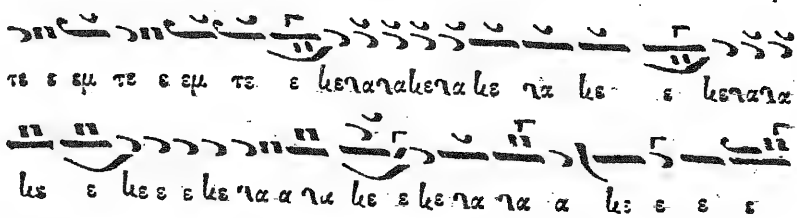 τε ε εμ τε ε εμ τε ε κενανακενα κε να κε ε κενανα
κε ε κε ε ε κε να α να κε ε κε να να α κε ε ε ε